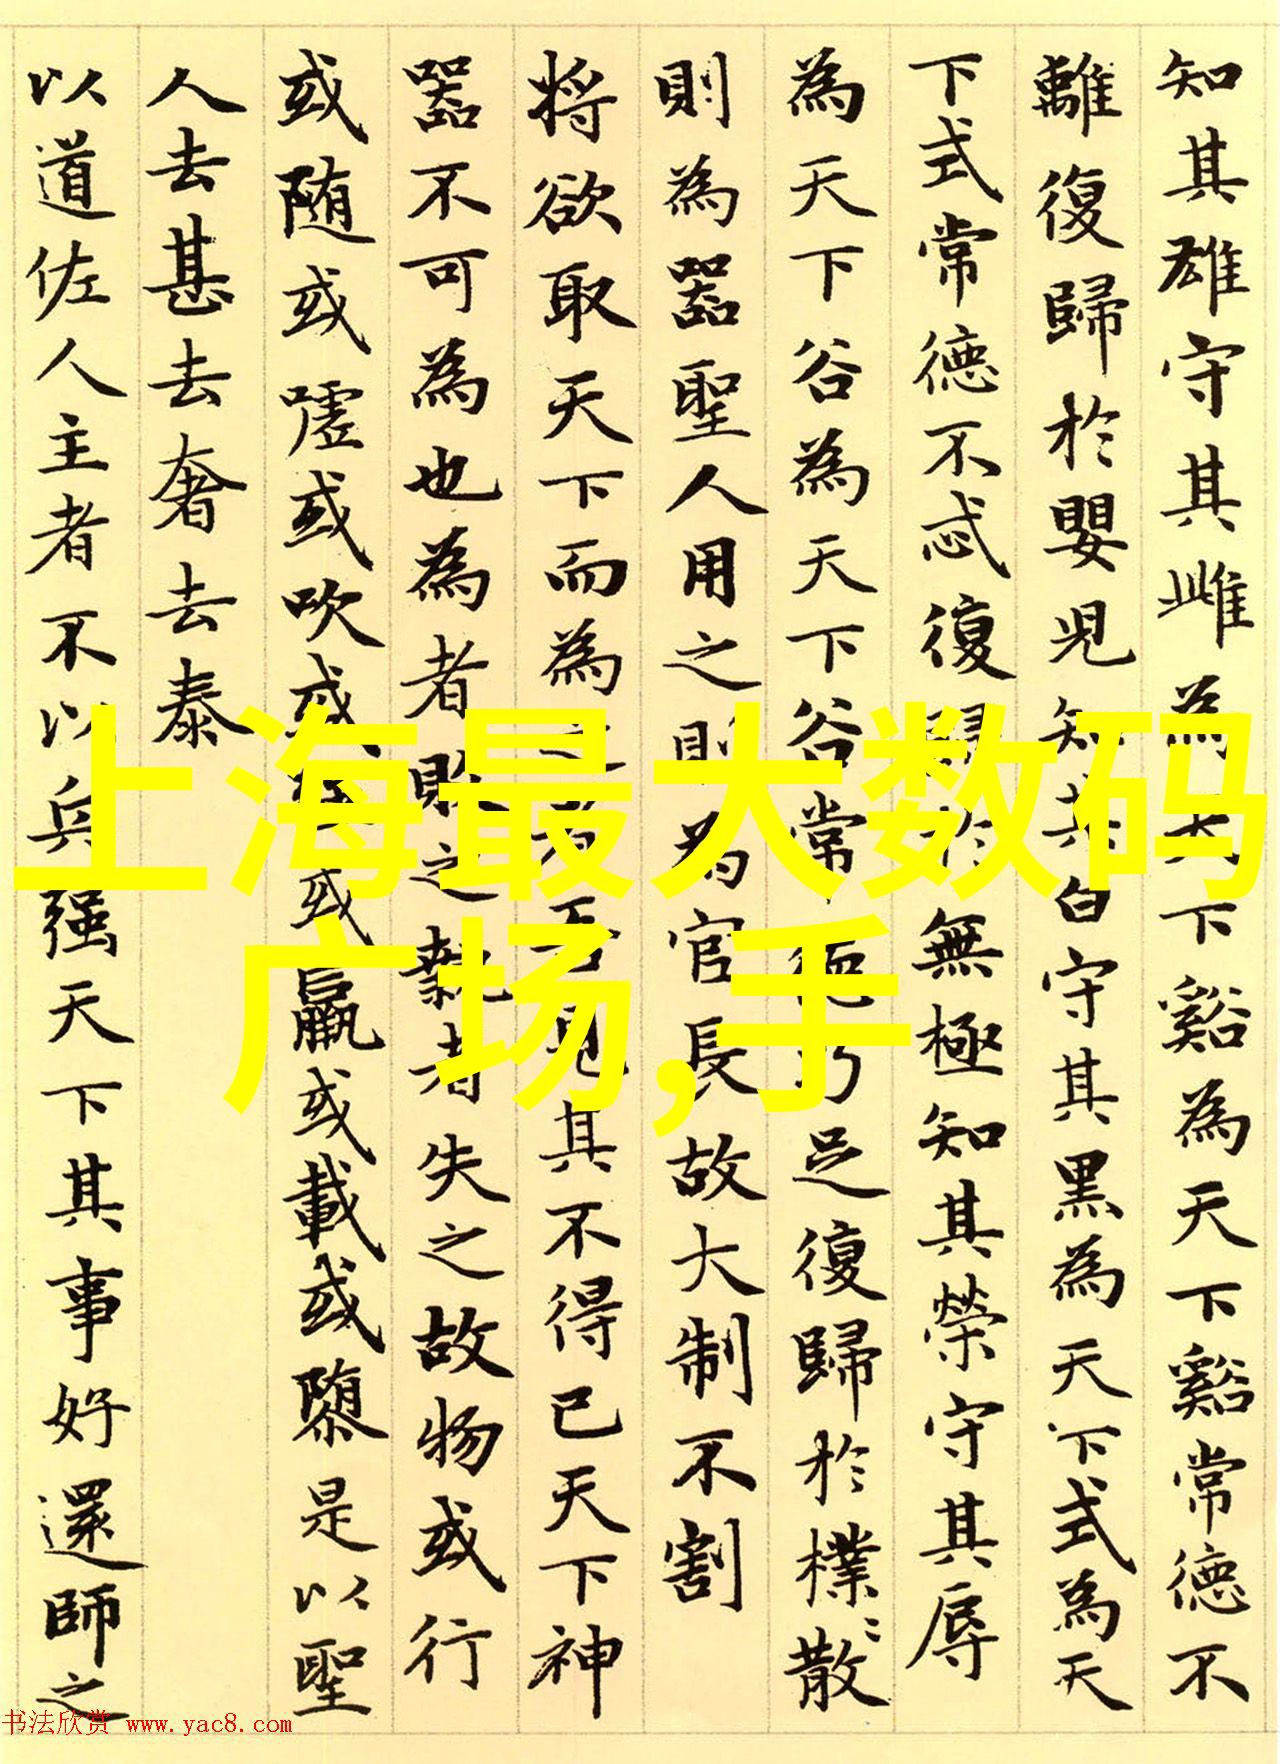 知其雄守其雌為天下谿為天下谿常德不
離復歸於嬰児知其白守其黑為天下式為天
下式常德不忒復歸於無極知其榮守其辱
為天下谷為天下谷常德乃足復歸於樸〻散
則為器聖人用之則為官長故大制不割
将欲取天下而為之者吾見其不得已天下神
器不可為也為者敗之執者失之故物或行
或随或嘘或吹或强或羸或載或隳是以聖
人去甚去奢去泰
以道佐人主者不以兵强天下其事好還師之
上海最大数码
广场,手
书法欣赏 www.yac8.com